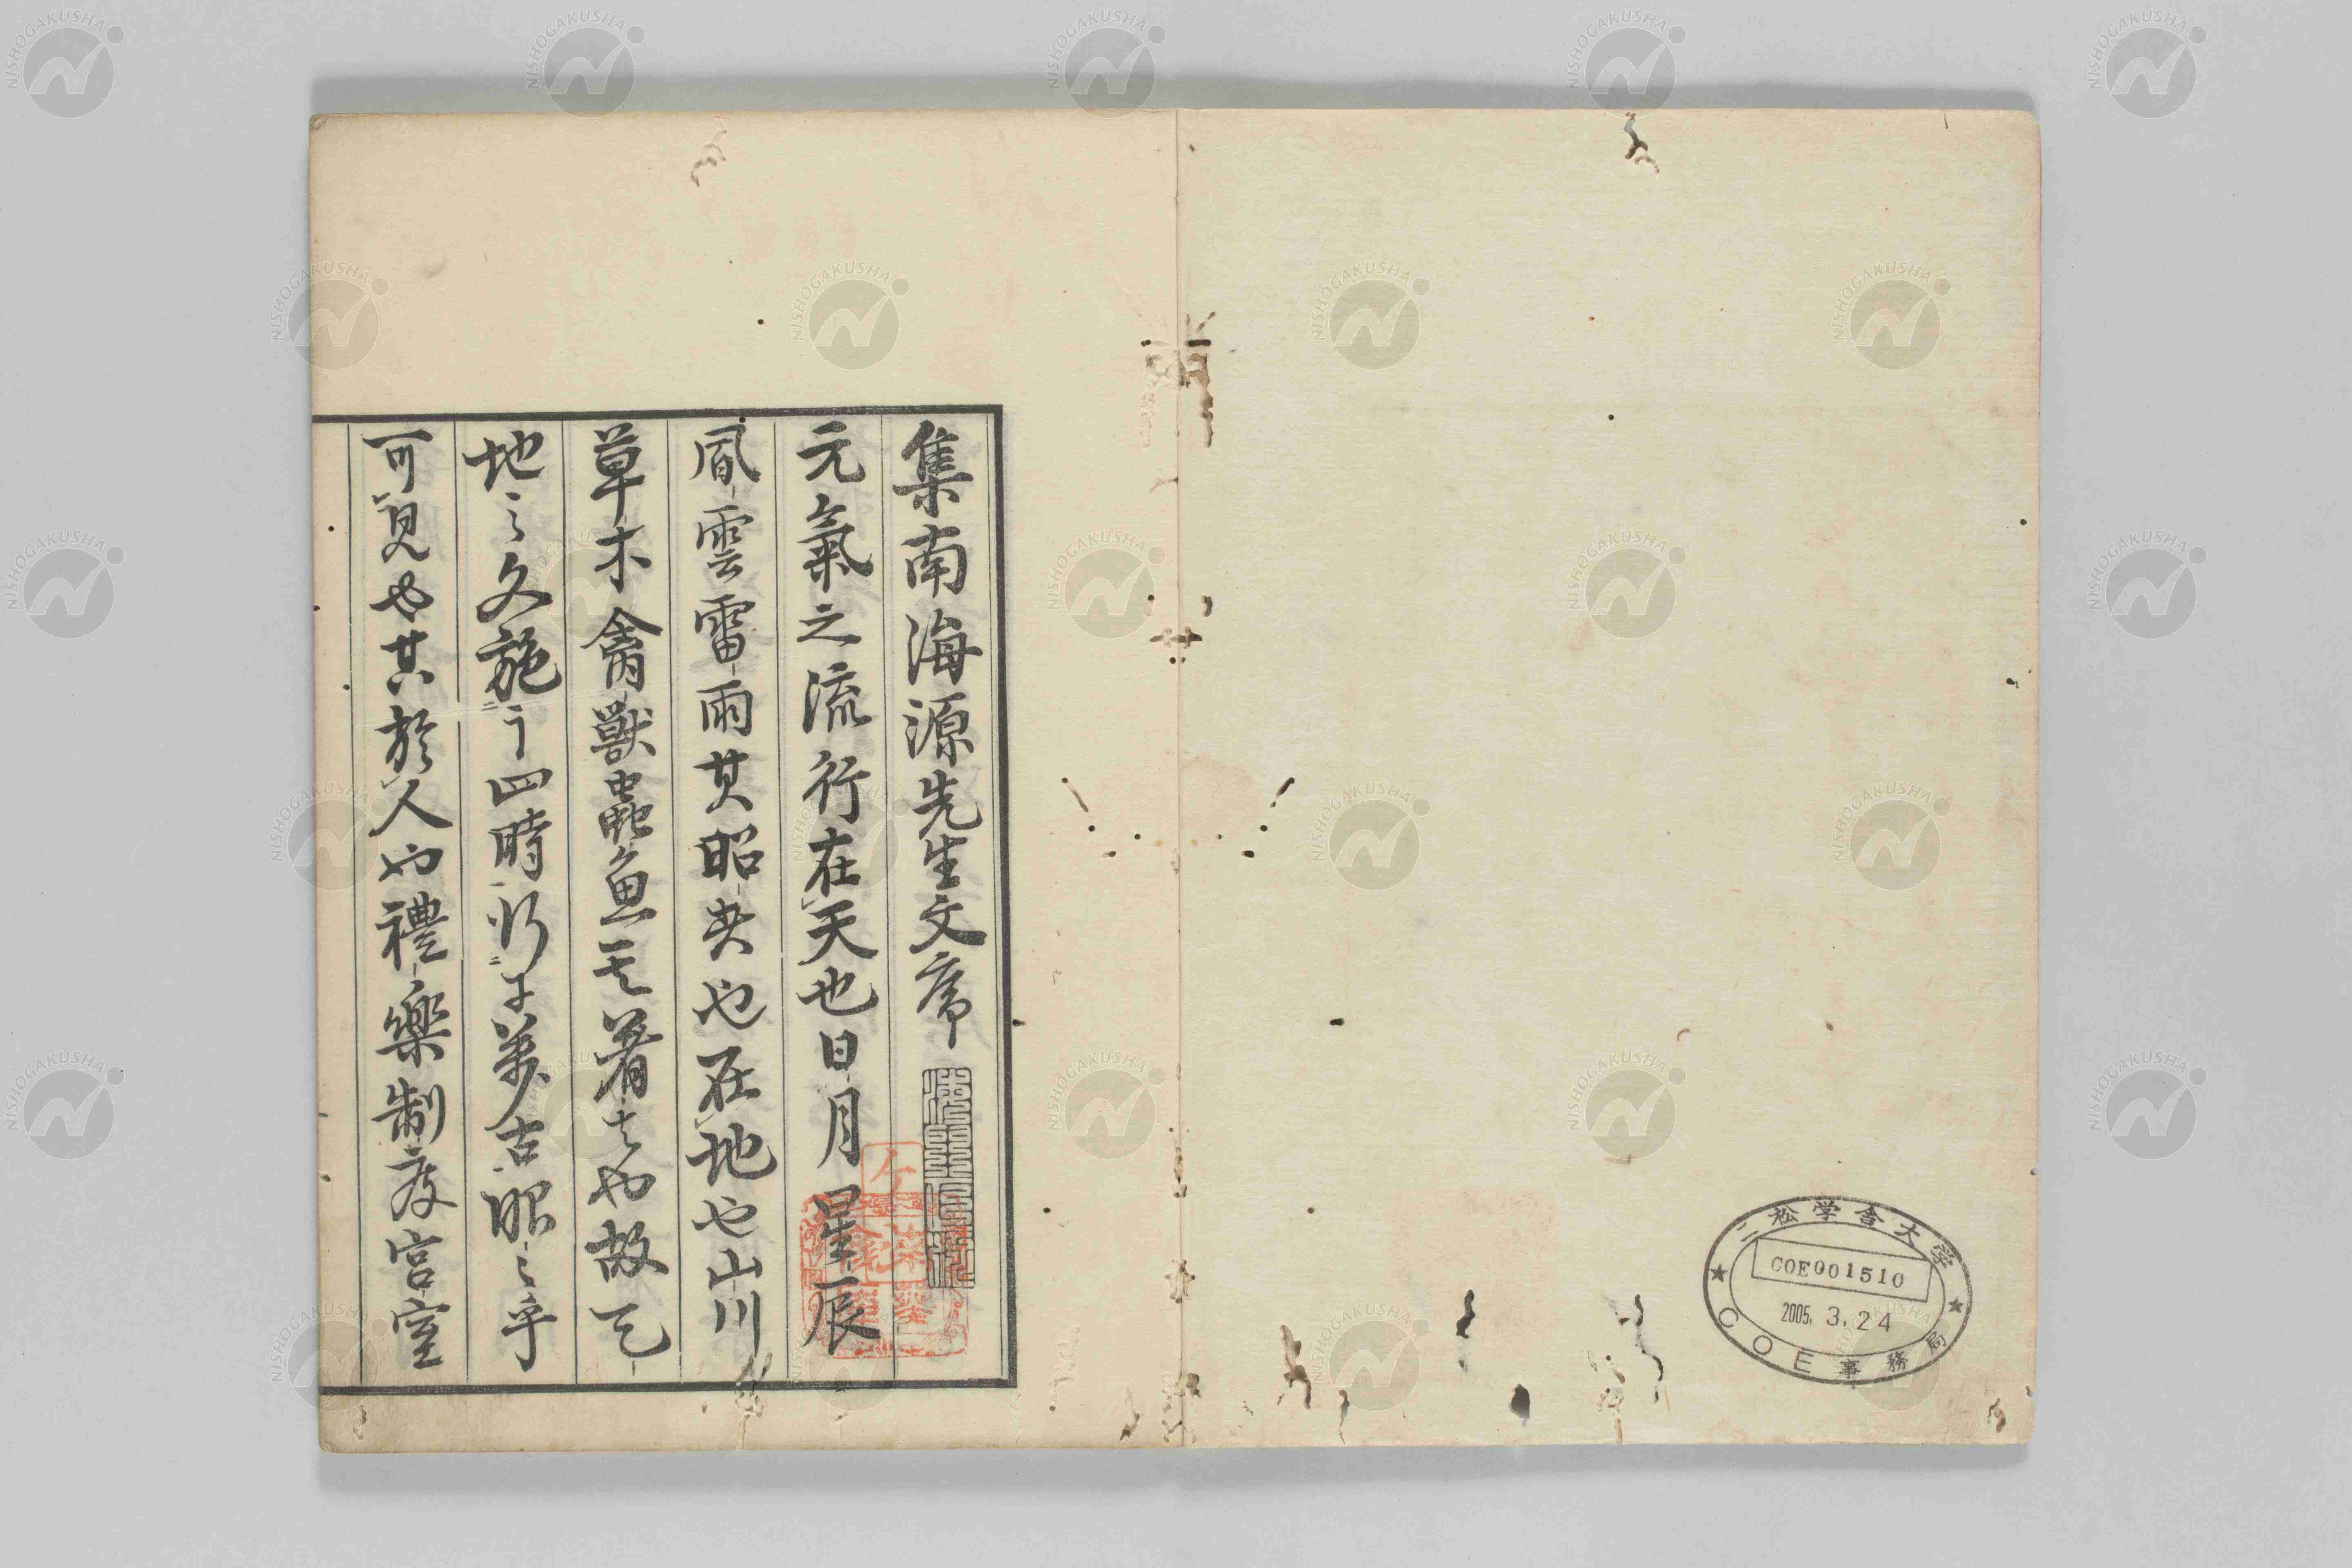 集南海源先生文序
元氣之流行在天也日月星辰
風雲雷雨其昭矣也在地也山川
草木禽獸蟲魚其著者也故天
地之久施乎四時行乎萬古昭々乎
可見也其於人也禮樂制度宮室
二松学舎大学
COE001510
2005. 3. 24
COE事務局
NISHOGAKUSHA